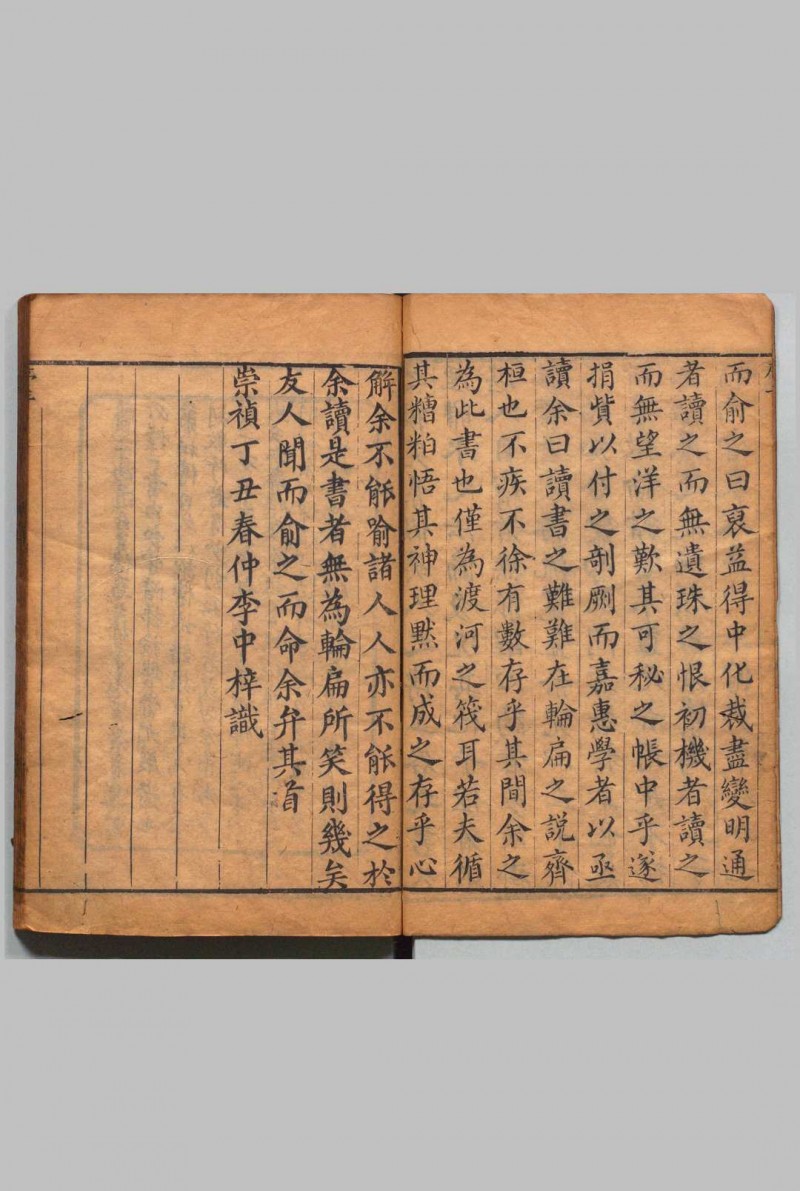 而俞之曰裒益得中化裁盡變明通
者讀之而無遺珠之恨初機者讀之
而無望洋之歎其可秘之帳中乎遂
捐貲以付之剞劂而嘉惠學者以亟
讀余曰讀書之難難在輪扁之說齊
桓也不疾不徐有數存乎其間余之
為此書也僅為渡河之筏耳若夫循
其糟粕悟其神理黙而成之存乎心
解余不能喻諸人人亦不能得之於
余讀是書者無為輪扁所笑則幾矣
友人聞而俞之而命余弁其首
崇禎丁丑春仲李中梓識